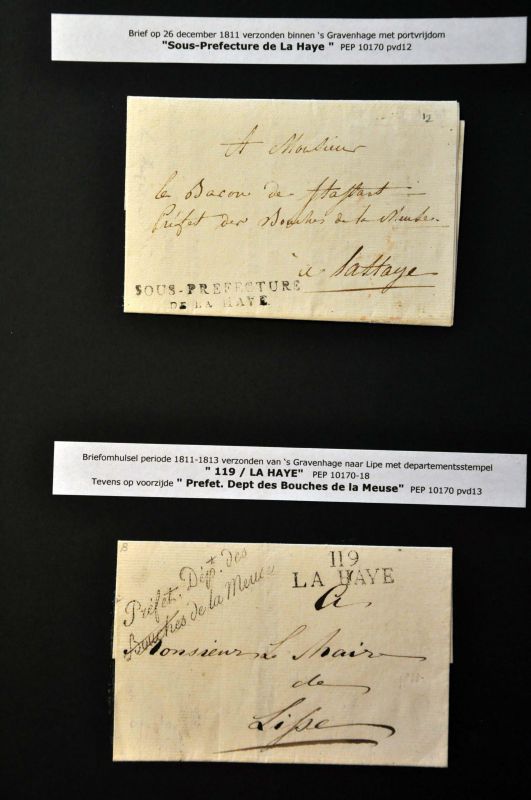 Brief op 26 december 1811 verzonden binnen 's Gravenhage met portvrijdom
"Sous-Prefecture de La Haye " PEP 10170 pvd12
12
A Monsieur
le Baron de Stassart
Préfet des Bouches de la Meuse
à Lahaye
SOUS-PREFECTURE
DE LA HAYE.
Briefomhulsel periode 1811-1813 verzonden van 's Gravenhage naar Lipe met departementsstempel
" 119 / LA HAYE" PEP 10170-18
Tevens op voorzijde " Prefet. Dept des Bouches de la Meuse" PEP 10170 pvd13
Préfet. Dépt. des
Bouches de la Meuse
119
LA HAYE
A
Monsieur Le Maire
de
Lisse